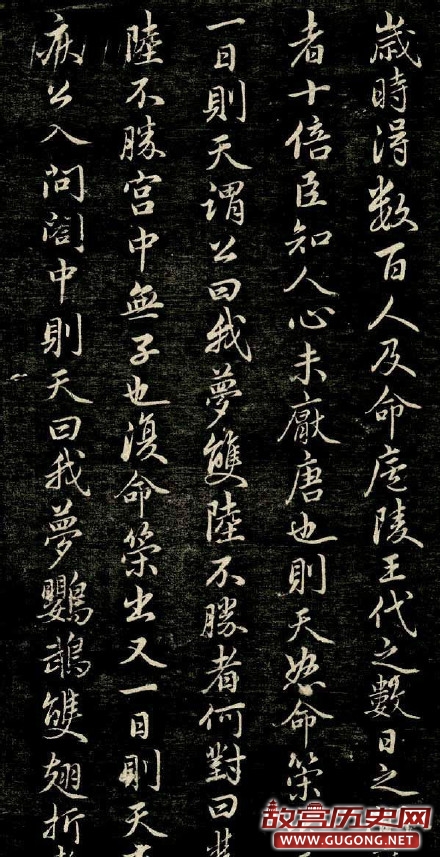 歲時得數百人及命廬陵王代之數日之
者十倍臣知人心未厭唐也則天怒命策
一日則天謂公曰我夢雙陸不勝者何對曰
陸不勝宮中無子也復命策出又一日則天
疾公入問閤中則天曰我夢鸚鵡雙翅折
故宫历史网
WWW.GUGONG.NET